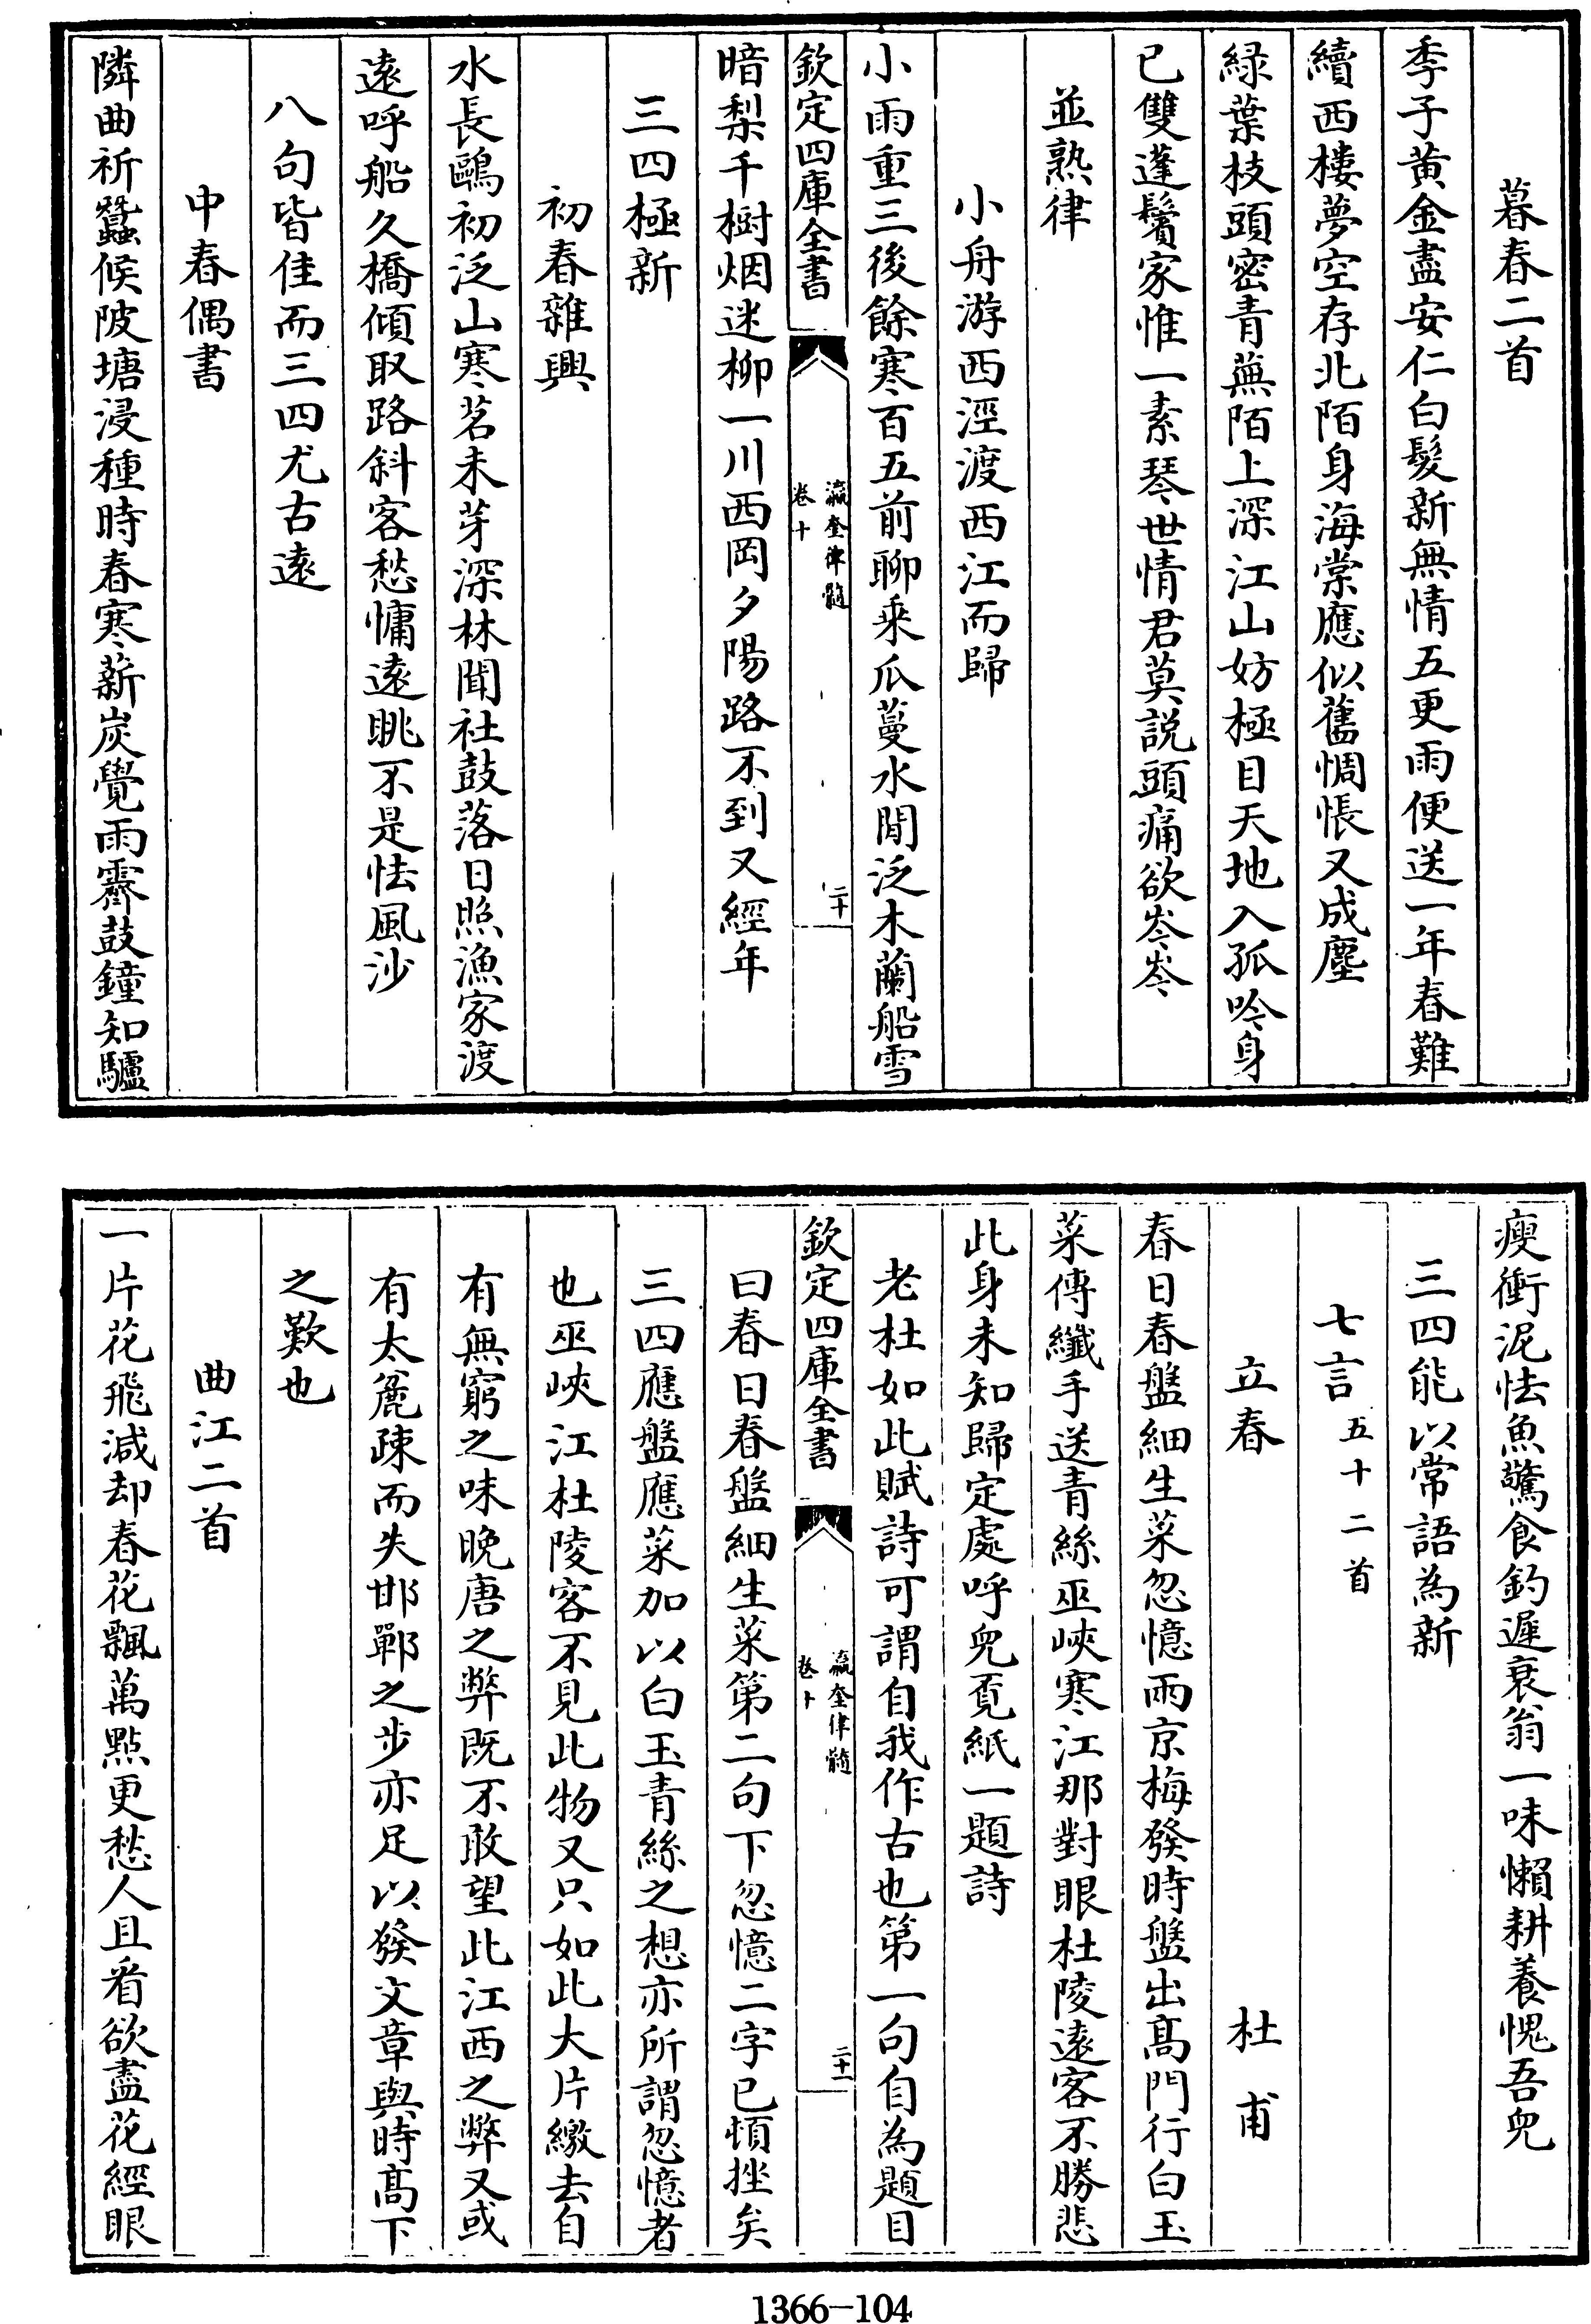 暮春二首
季子黄金盡安仁白髮新無情五更雨便送一年春難
續西樓夢空存北陌身海棠應似舊惆悵又成塵
緑葉枝頭密青蕪陌上深江山妨極目天地入孤吟身
已雙蓬鬢家惟一素琴世情君莫説頭痛欲岑岑
並熟律
小舟游西涇渡西江而歸
小雨重三後餘寒百五前聊乗瓜蔓水閒泛木蘭船雪
欽定四庫全書
瀛奎律髓
卷十
二十
暗梨千樹烟迷柳一川西岡夕陽路不到又經年
三四極新
初春雜興
水長鷗初泛山寒茗未芽深林聞社鼓落日照漁家渡
遠呼船久橋傾取路斜客愁慵遠眺不是怯風沙
八句皆佳而三四尤古遠
中春偶書
隣曲祈蠶候陂塘浸種時春寒薪炭覺雨霽鼓鐘知驢
瘦衝泥怯魚驚食釣遲衰翁一味懶耕養愧吾兒
三四能以常語為新
七言五十二首
立春 杜甫
春日春盤細生菜忽憶兩京梅發時盤出髙門行白玉
菜傳纖手送青絲巫峽寒江那對眼杜陵逺客不勝悲
此身未知歸定處呼兒覓紙一題詩
老杜如此賦詩可謂自我作古也第一句自為題目
欽定四庫全書
瀛奎律髓
卷十
二十一
曰春日春盤細生菜第二句下忽憶二字已頓挫矣
三四應盤應菜加以白玉青絲之想亦所謂忽憶者
也巫峽江杜陵客不見此物又只如此大片繳去自
有無窮之味晚唐之弊既不敢望此江西之弊又或
有太麄疎而失邯鄲之步亦足以發文章與時髙下
之歎也
曲江二首
一片花飛減却春花飄萬點更愁人且看欲盡花經眼
1366—104